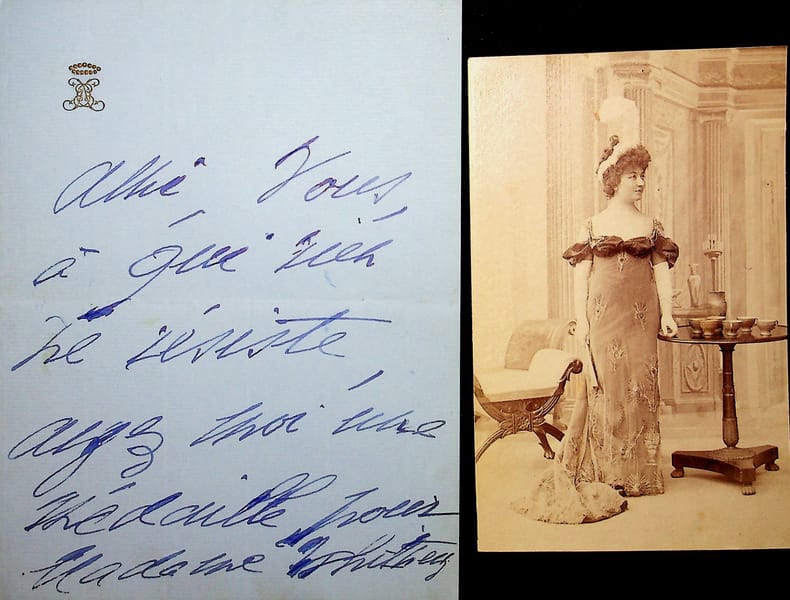 Ami Vous,
à qui rien
ne résiste,
ayez moi une
médaille pour
Madame Whitney